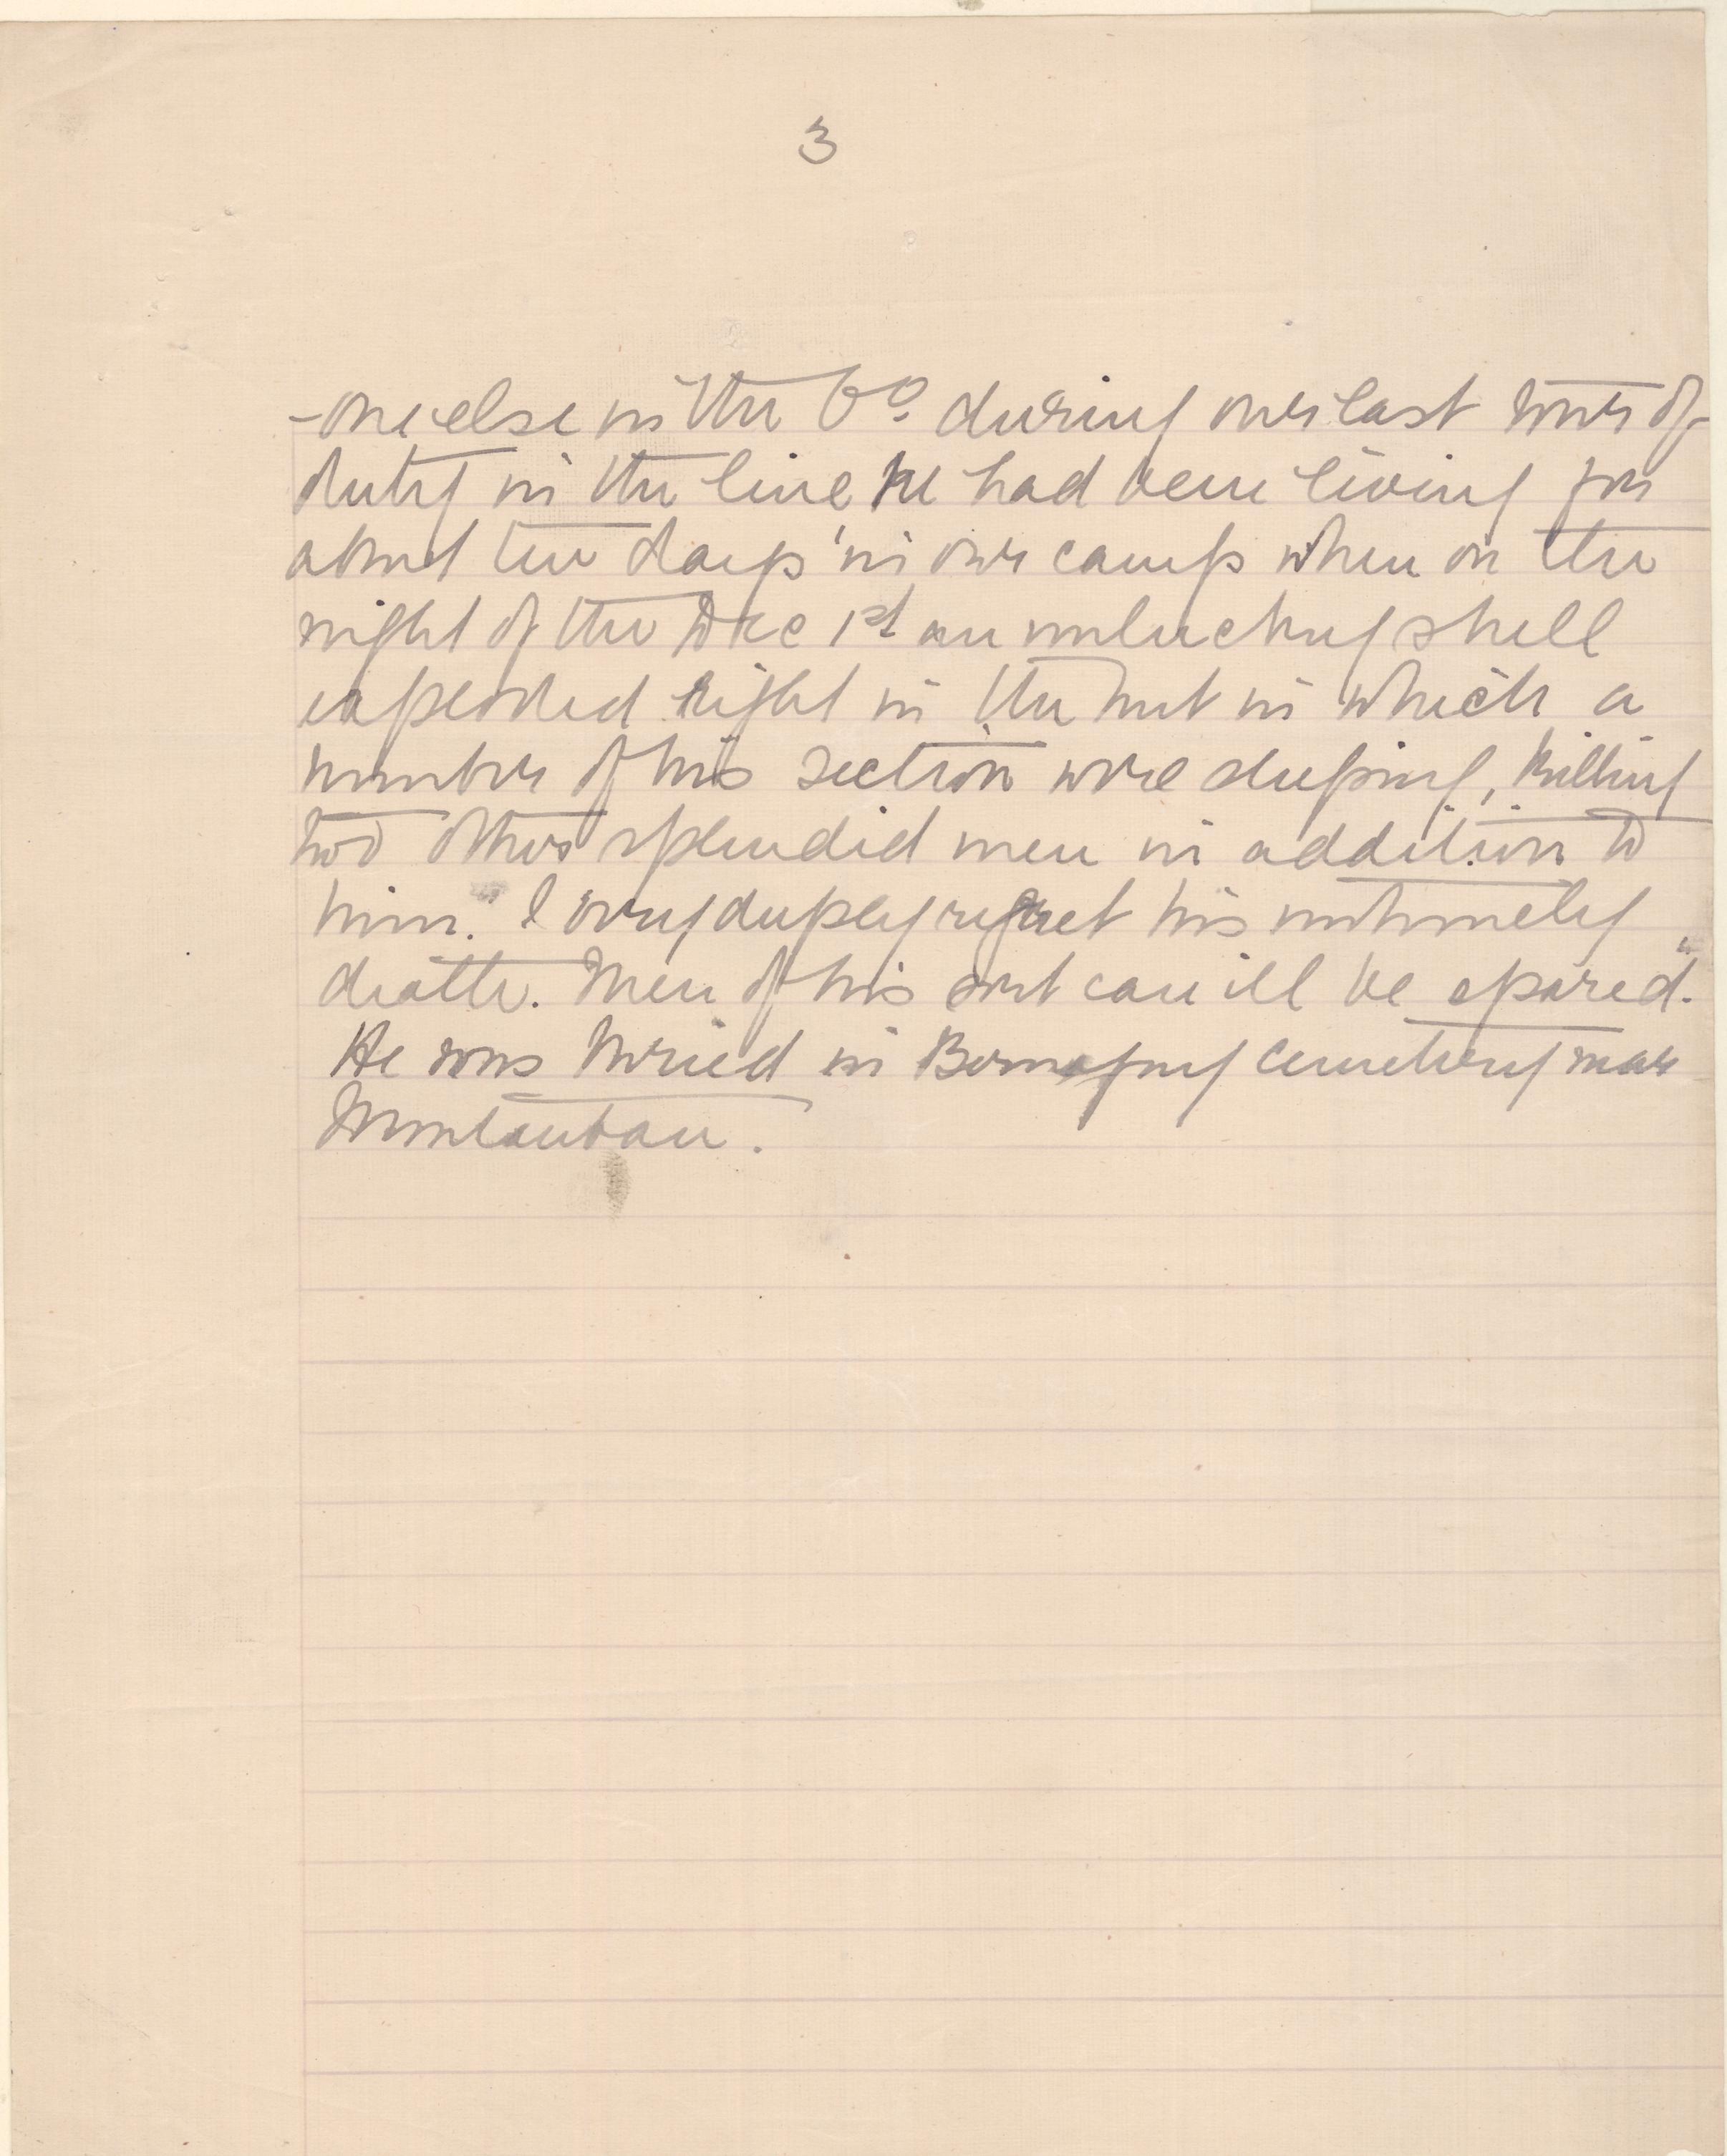 3
-one else in the Co. during our last tour of
duty in the line he had been living for
about ten days in our camp when on the
night of the Dec 1st an unlucky shell
exploded right in the hut in which a
number of his section were sleeping, killing
two other splendid men in addition to
him. I very deeply regret his untimely
death. Men of his sort can ill be spared."
He was buried in Bernafay cemetery near
Montauban.